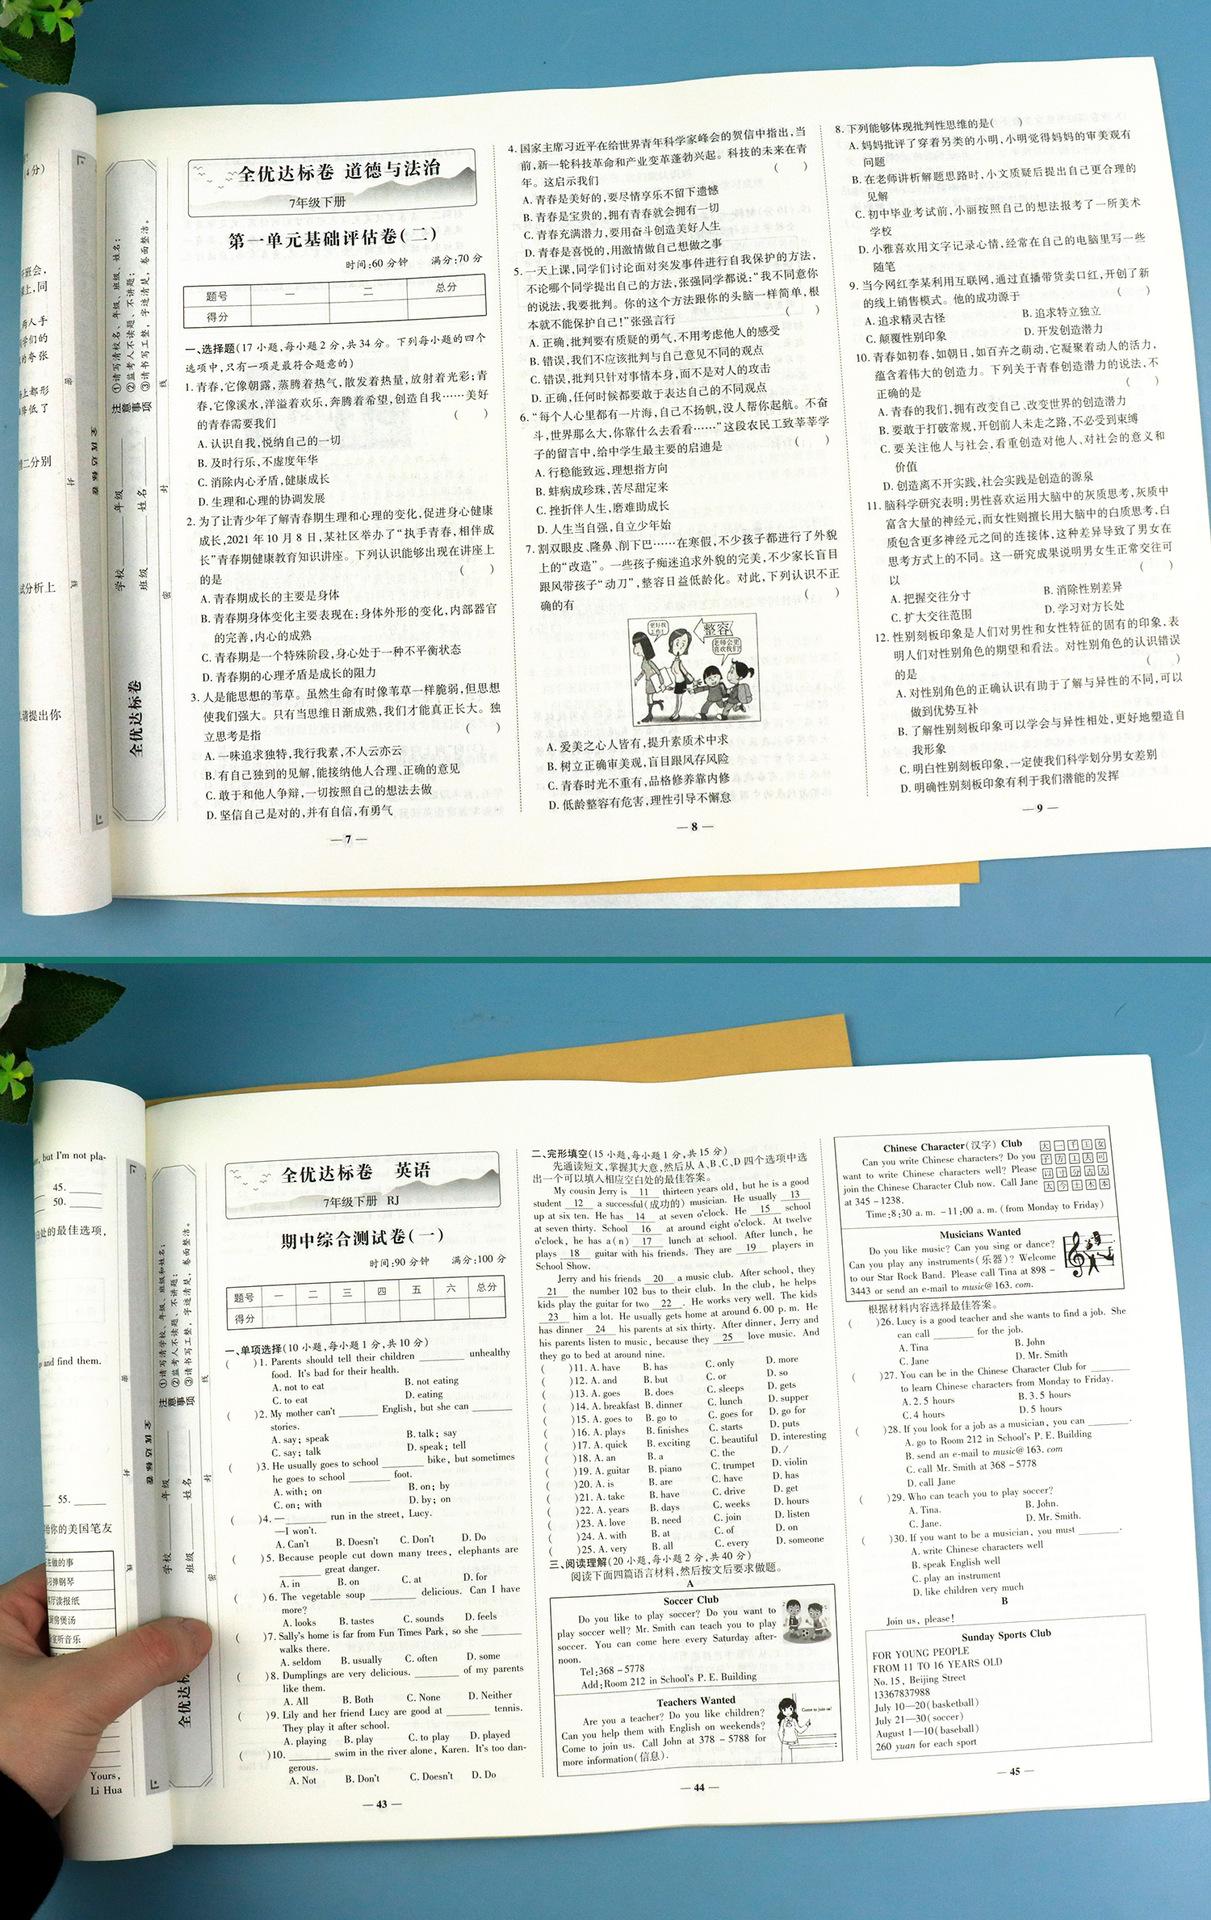 全优达标卷 道德与法治
7年级下册
第一单元基础评估卷(二)
时间:60分钟 满分:70分
题号 一 二 总分
得分
一、选择题(17小题,每小题2分,共34分。下列每小题的四个
选项中,只有一项是最符合题意的)
1. 青春,它像朝露,蒸腾着热气,散发着热量,放射着光彩;青
春,它像溪水,洋溢着欢乐,奔腾着希望,创造自我……美好
的青春需要我们 ( )
A. 认识自我,悦纳自己的一切
B. 及时行乐,不虚度年华
C. 消除内心矛盾,健康成长
D. 生理和心理的协调发展
2. 为了让青少年了解青春期生理和心理的变化,促进身心健康
成长,2021年10月8日,某社区举办了“执手青春,相伴成
长”青春期健康教育知识讲座。下列认识能够出现在讲座上
的是 ( )
A. 青春期成长的主要是身体
B. 青春期身体变化主要表现在:身体外形的变化,内部器官
的完善,内心的成熟
C. 青春期是一个特殊阶段,身心处于一种不平衡状态
D. 青春期的心理矛盾是成长的阻力
3. 人是能思想的苇草。虽然生命有时像苇草一样脆弱,但思想
使我们强大。只有当思维日渐成熟,我们才能真正长大。独
立思考是指 ( )
A. 一味追求独特,我行我素,不人云亦云
B. 有自己独到的见解,能接纳他人合理、正确的意见
C. 敢于和他人争辩,一切按照自己的想法去做
D. 坚信自己是对的,并有自信,有勇气
— 7 —
4. 国家主席习近平在给世界青年科学家峰会的贺信中指出,当
前,新一轮科技革命和产业变革蓬勃兴起。科技的未来在青
年。这启示我们 ( )
A. 青春是美好的,要尽情享乐不留下遗憾
B. 青春是宝贵的,拥有青春就会拥有一切
C. 青春充满潜力,要用奋斗创造美好人生
D. 青春是喜悦的,用激情做自己想做之事
5. 一天上课,同学们讨论面对突发事件进行自我保护的方法,
不论哪个同学提出自己的方法,张强同学都说:“我不同意你
的说法,我要批判。你的这个方法跟你的头脑一样简单,根
本就不能保护自己!”张强言行 ( )
A. 正确,批判要有质疑的勇气,不用考虑他人的感受
B. 错误,我们不应该批判与自己意见不同的观点
C. 错误,批判只针对事情本身,而不是对人的攻击
D. 正确,任何时候都要敢于表达自己的不同观点
6. “每个人心里都有一片海,自己不扬帆,没人帮你起航。不奋
斗,世界那么大,你靠什么去看看……”这段农民工致莘莘学
子的留言中,给中学生最主要的启迪是 ( )
A. 行稳能致远,理想指方向
B. 蚌病成珍珠,苦尽甜定来
C. 挫折伴人生,磨难助成长
D. 人生当自强,自立少年始
7. 割双眼皮、隆鼻、削下巴……在寒假,不少孩子都进行了外貌
上的“改造”。一些孩子痴迷追求外貌的完美,不少家长盲目
跟风带孩子“动刀”,整容日益低龄化。对此,下列认识不正
确的有 ( )
整容
A. 爱美之心人皆有,提升素质术中求
B. 树立正确审美观,盲目跟风存风险
C. 青春时光不重有,品格修养靠内修
D. 低龄整容有危害,理性引导不懈怠
— 8 —
8. 下列能够体现批判性思维的是( )
A. 妈妈批评了穿着另类的小明,小明觉得妈妈的审美观有
问题
B. 在老师讲析解题思路时,小文质疑后提出自己更合理的
见解
C. 初中毕业考试前,小丽按照自己的想法报考了一所美术
学校
D. 小雅喜欢用文字记录心情,经常在自己的电脑里写一些
随笔
9. 当今网红李某利用互联网,通过直播带货卖口红,开创了新
的线上销售模式。他的成功源于 ( )
A. 追求精灵古怪 B. 追求特立独立
C. 颠覆性别印象 D. 开发创造潜力
10. 青春如初春,如朝日,如百卉之萌动,它凝聚着动人的活力,
蕴含着伟大的创造力。下列关于青春创造潜力的说法,不
正确的是 ( )
A. 青春的我们,拥有改变自己、改变世界的创造潜力
B. 要敢于打破常规,开创前人未走之路,不必受到束缚
C. 要关注他人与社会,看重创造对他人、对社会的意义和
价值
D. 创造离不开实践,社会实践是创造的源泉
11. 脑科学研究表明:男性喜欢运用大脑中的灰质思考,灰质中
富含大量的神经元,而女性则擅长用大脑中的白质思考,白
质包含更多神经元之间的连接体,这种差异导致了男女在
思考方式上的不同。这一研究成果说明男女生正常交往可
以 ( )
A. 把握交往分寸 B. 消除性别差异
C. 扩大交往范围 D. 学习对方长处
12. 性别刻板印象是人们对男性和女性特征的固有的印象,表
明人们对性别角色的期望和看法。对性别角色的认识错误
的是 ( )
A. 对性别角色的正确认识有助于了解与异性的不同,可以
做到优势互补
B. 了解性别刻板印象可以学会与异性相处,更好地塑造自
我形象
C. 明白性别刻板印象,一定使我们科学划分男女差别
D. 明确性别刻板印象有利于我们潜能的发挥
— 9 —
注意事项
①请写清校名、年级、班级、姓名;
②监考人不读题、不讲题;
③请书写工整,字迹清楚,卷面整洁。
学校 年级
班级 姓名
密 封 线
全优达标卷
全优达标卷 英语
7年级下册 RJ
期中综合测试卷(一)
时间:90分钟 满分:100分
题号 一 二 三 四 五 六 总分
得分
一、单项选择(10小题,每小题1分,共10分)
( )1. Parents should tell their children ______ unhealthy
food. It's bad for their health.
A. not to eat B. not eating
C. to eat D. eating
( )2. My mother can't ______ English, but she can ______
stories.
A. say; speak B. talk; say
C. say; talk D. speak; tell
( )3. He usually goes to school ______ bike, but sometimes
he goes to school ______ foot.
A. with; on B. on; by
C. on; with D. by; on
( )4. —______ run in the street, Lucy.
—I won't.
A. Can't B. Doesn't C. Don't D. Do
( )5. Because people cut down many trees, elephants are
______ great danger.
A. in B. on C. at D. for
( )6. The vegetable soup ______ delicious. Can I have
more?
A. looks B. tastes C. sounds D. feels
( )7. Sally's home is far from Fun Times Park, so she ______
walks there.
A. seldom B. usually C. often D. some
( )8. Dumplings are very delicious. ______ of my parents
like them.
A. All B. Both C. None D. Neither
( )9. Lily and her friend Lucy are good at ______ tennis.
They play it after school.
A. playing B. play C. to play D. played
( )10. ______ swim in the river alone, Karen. It's too dan-
gerous.
A. Not B. Don't C. Doesn't D. Do
— 43 —
二、完形填空(15小题,每小题1分,共15分)
先通读短文,掌握其大意,然后从A、B、C、D四个选项中选
出一个可以填入相应空白处的最佳答案。
My cousin Jerry is 11 thirteen years old, but he is a good
student 12 a successful(成功的) musician. He usually 13
up at six ten. He has 14 at seven o'clock. He 15 school
at seven thirty. School 16 at around eight o'clock. At twelve
o'clock, he has a(n) 17 lunch at school. After lunch, he
plays 18 guitar with his friends. They are 19 players in
School Show.
Jerry and his friends 20 a music club. After school, they
21 the number 102 bus to their club. In the club, he helps
kids play the guitar for two 22 . He works very well. The kids
23 him a lot. He usually gets home at around 6:00 p. m. He
has dinner 24 his parents at six thirty. After dinner, Jerry and
his parents listen to music, because they 25 love music. And
they go to bed at around nine.
( )11. A. have B. has C. only D. more
( )12. A. and B. but C. or D. so
( )13. A. goes B. does C. sleeps D. gets
( )14. A. breakfast B. dinner C. lunch D. supper
( )15. A. goes to B. go to C. goes for D. go for
( )16. A. plays B. finishes C. starts D. puts
( )17. A. quick B. exciting C. beautiful D. interesting
( )18. A. an B. a C. the D. /
( )19. A. guitar B. piano C. trumpet D. violin
( )20. A. is B. are C. have D. has
( )21. A. take B. have C. drive D. get
( )22. A. years B. days C. weeks D. hours
( )23. A. love B. need C. join D. listen
( )24. A. with B. at C. of D. on
( )25. A. very B. all C. every D. someone
三、阅读理解(20小题,每小题2分,共40分)
阅读下面四篇语言材料,然后按文后要求做题。
A
Soccer Club
Do you like to play soccer? Do you want to
play soccer well? Mr. Smith can teach you to play
soccer. You can come here every Saturday after-
noon.
Tel:368-5778
Add:Room 212 in School's P. E. Building
Teachers Wanted
Are you a teacher? Do you like children?
Can you help them with English on weekends?
Come to join us. Call John at 378-5788 for
more information(信息).
Come to join us!
— 44 —
Chinese Character(汉字) Club
Can you write Chinese characters? Do you
want to write Chinese characters well? Please
join the Chinese Character Club now. Call Jane
at 345-1238.
Time:8:30 a. m. -11:00 a. m. (from Monday to Friday)
Musicians Wanted
Do you like music? Can you sing or dance?
Can you play any instruments(乐器)? Welcome
to our Star Rock Band. Please call Tina at 898-
3443 or send an e-mail to music@163.com.
根据材料内容选择最佳答案。
( )26. Lucy is a good teacher and she wants to find a job. She
can call ______ for the job.
A. Tina B. John
C. Jane D. Mr. Smith
( )27. You can be in the Chinese Character Club for ______
to learn Chinese characters from Monday to Friday.
A. 2.5 hours B. 3.5 hours
C. 4 hours D. 5 hours
( )28. If you look for a job as a musician, you can ______.
A. go to Room 212 in School's P. E. Building
B. send an e-mail to music@163.com
C. call Mr. Smith at 368-5778
D. call Jane
( )29. Who can teach you to play soccer?
A. Tina. B. John.
C. Jane. D. Mr. Smith.
( )30. If you want to be a musician, you must ______.
A. write Chinese characters well
B. speak English well
C. play an instrument
D. like children very much
B
Join us, please!
Sunday Sports Club
FOR YOUNG PEOPLE
FROM 11 TO 16 YEARS OLD
No. 15, Beijing Street
13367837988
July 10—20(basketball)
July 21—30(soccer)
August 1—10(baseball)
260 yuan for each sport
— 45 —
注意事项
①请写清学校、年级、班级和姓名;
②监考人不读题、不讲题;
③请书写工整,字迹清楚,卷面整洁。
学校 年级
班级 姓名
密 封 线
but I'm not pla-
45.
50.
处的最佳选项,
and find them.
55.
给你的美国笔友
Yours,
Li Hua